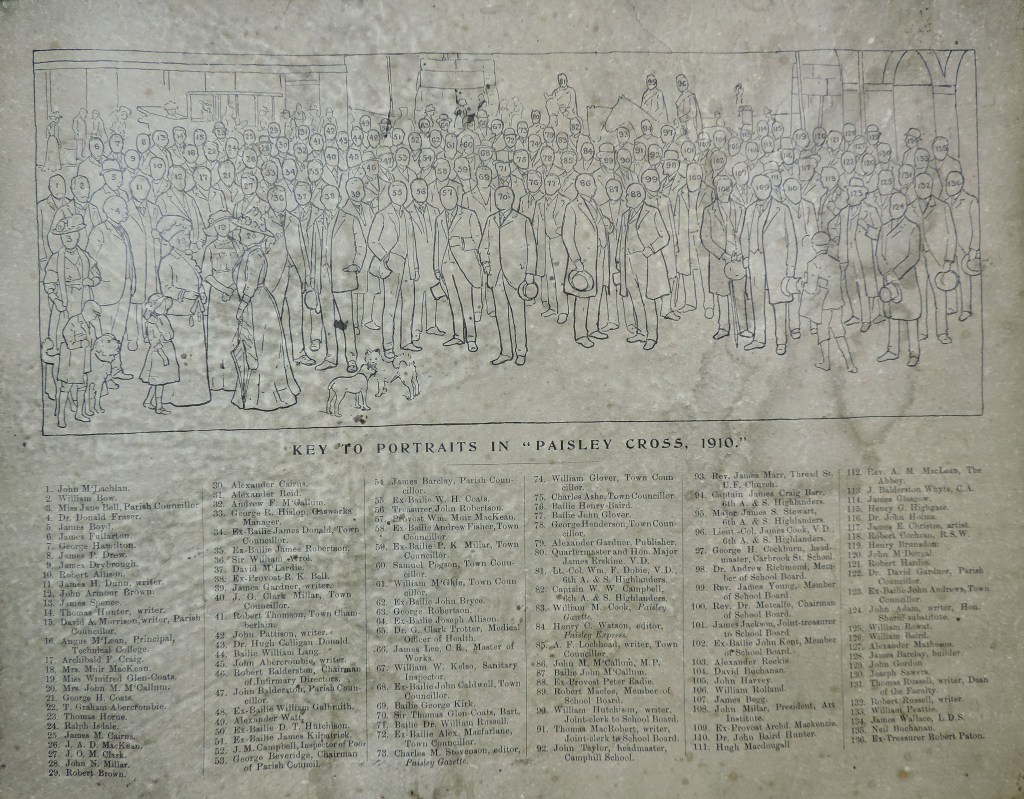 KEY TO PORTRAITS IN "PAISLEY CROSS, 1910."
1. John M'Lachlan.
2. William Bow.
3. Miss Jane Bell, Parish Councillor
4. Dr. Donald Fraser.
5. James Boyd.
6. James Fullarton.
7. George Hamilton.
8. James P. Drew.
9. James Drybrough.
10. Robert Allison.
11. James H. Dunn, writer.
12. John Armour Brown.
13. James Spence.
14. Thomas Hunter, writer.
15. David A. Morrison, writer, Parish
Councillor.
16. Angus M'Lean, Principal,
Technical College.
17. Archibald F. Craig.
18. Mrs. Muir MacKean.
19. Miss Winifred Glen-Coats.
20. Mrs. John M. M'Callum.
21. George H. Coats.
22. T. Graham Abercrombie.
23. Thomas Horne.
24. Ralph Isdale.
25. James M. Cairns.
26. J. A. D. MacKean.
27. J. O. M. Clark.
28. John N. Millar.
29. Robert Brown.
30. Alexander Cairns.
31. Alexander Reid.
32. Andrew F. M'Callum.
33. George R. Hislop, Gasworks
Manager.
34. Ex-Bailie James Donald, Town
Councillor.
35. Ex-Bailie James Robertson.
36. Sir William Arrol.
37. Dr. David M'Lardie.
38. Ex-Provost R. K. Bell.
39. James Gardner, writer.
40. J. G. Clark Millar, Town
Councillor.
41. Robert Thomson, Town Cham-
berlain.
42. John Pattison, writer.
43. Dr. Hugh Colligan Donald.
44. Bailie William Lang.
45. John Abercrombie, writer.
46. Robert Balderston, Chairman
of Infirmary Directors.
47. John Balderston, Parish Coun-
cillor.
48. Ex-Bailie William Galbraith.
49. Alexander Watt.
50. Ex-Bailie D. T. Hutchison.
51. Ex-Bailie James Kilpatrick.
52. J. M. Campbell, Inspector of Poor
53. George Beveridge, Chairman
of Parish Council.
54. James Barclay, Parish Coun-
cillor.
55. Ex-Bailie W. H. Coats.
56. Treasurer John Robertson.
57. Provost Wm. Muir MacKean.
58. Ex-Bailie Andrew Fisher, Town
Councillor.
59. Ex-Bailie P. K. Millar, Town
Councillor.
60. Samuel Pogson, Town Coun-
cillor.
61. William M'Ghie, Town Coun
cillor.
62. Ex-Bailie John Bryce.
63. George Robertson.
64. Ex-Bailie Joseph Allison.
65. Dr. G. Clark Trotter, Medical
Officer of Health.
66. James Lee, C.E., Master of
Works.
67. William W. Kelso, Sanitary
Inspector.
68. Ex-Bailie John Caldwell, Town
Councillor.
69. Bailie George Kirk.
70. Sir Thomas Glen-Coats, Bart.
71. Bailie Dr. William Russell.
72. Ex-Bailie Alex. Macfarlane,
Town Councillor.
73. Charles M. Stevenson, editor,
Paisley Gazette.
74. William Glover, Town Coun-
cillor.
75. Charles Ashe, Town Councillor
76. Bailie Henry Baird.
77. Bailie John Glover.
78. George Henderson, Town Coun-
cillor.
79. Alexander Gardner, Publisher.
80. Quartermaster and Hon. Major
James Erskine, V.D.
81. Lt.-Col. Wm. F. Dobie, V.D.,
6th A. & S. Highlanders.
82. Captain W. W. Campbell,
6th A. & S. Highlanders.
83. William M. Cook, Paisley
Gazette.
84. Henry C. Watson, editor,
Paisley Express.
85. A. F. Lochhead, writer, Town
Councillor.
86. John M. M'Callum, M.P.
87. Bailie John M'Callum.
88. Ex-Provost Peter Eadie.
89. Robert Macfee, Member of
School Board.
90. William Hutcheson, writer,
Joint-clerk to School Board.
91. Thomas MacRobert, writer,
Joint-clerk to School Board.
92. John Taylor, headmaster,
Camphill School.
93. Rev. James Marr, Thread St.
U.F. Church.
94. Captain James Craig Barr,
6th A. & S. Highlanders.
95. Major James S. Stewart,
6th A. & S. Highlanders.
96. Lieut.-Col. James Cook, V.D.
6th A. & S. Highlanders.
97. George H. Cockburn, head-
master, Carbrook St. School.
98. Dr. Andrew Richmond, Mem-
ber of School Board.
99. Rev. James Young, Member
of School Board.
100. Rev. Dr. Metcalfe, Chairman
of School Board.
101. James Jackson, Joint-treasurer
to School Board
102. Ex-Bailie John Kent, Member
of School Board.
103. Alexander Reekie
104. David Buchanan
105. John Harvey
106. William Rolland
107. James Begg.
108. John Millar, President, Art
Institute.
109. Ex-Provost Archd. Mackenzie.
110. Dr. John Baird Hunter.
111. Hugh Macdougall
112. Rev. A. M. MacLean, The
Abbey.
113. J. Balderston Whyte, C.A.
114. James Glasgow.
115. Henry G. Highgate.
116. Dr. John Holms.
117. James E. Christie, artist.
118. Robert Cochran, R.S.W.
119. Henry Brunsdon.
120. John M'Dougal.
121. Robert Hardie.
122. Dr. David Gardner, Parish
Councillor.
123. Ex-Bailie John Andrews, Town
Councillor.
124. John Adam, writer, Hon.
Sheriff-substitute.
125. William Rowat.
126. William Baird.
127. Alexander Matheson.
128. James Barclay, builder.
129. John Gordon
130. Joseph Sawers.
131. Thomas Russell, writer, Dean
of the Faculty.
132. Robert Russell, writer.
133. William Peattie.
134. James Wallace, L.D.S.
135. Neil Buchanan.
136. Ex-Treasurer Robert Paton.